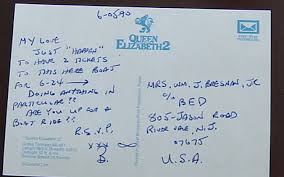 6-05-90
QUEEN
ELIZABETH 2
MY LOVE
JUST "HAPPEN"
TO HAVE 2 TICKETS
TO THIS HERE BOAT
FOR 6-24
DOING ANYTHING IN
PARTICULAR??
ARE YOU UP FOR A
BOAT RIDE??
R.S.V.P.
XXX
B.
MRS. WM. J. BRESNAN, JR
c/o
BED
805-JASON ROAD
RIVER VALE, N.J.
07675
U.S.A.